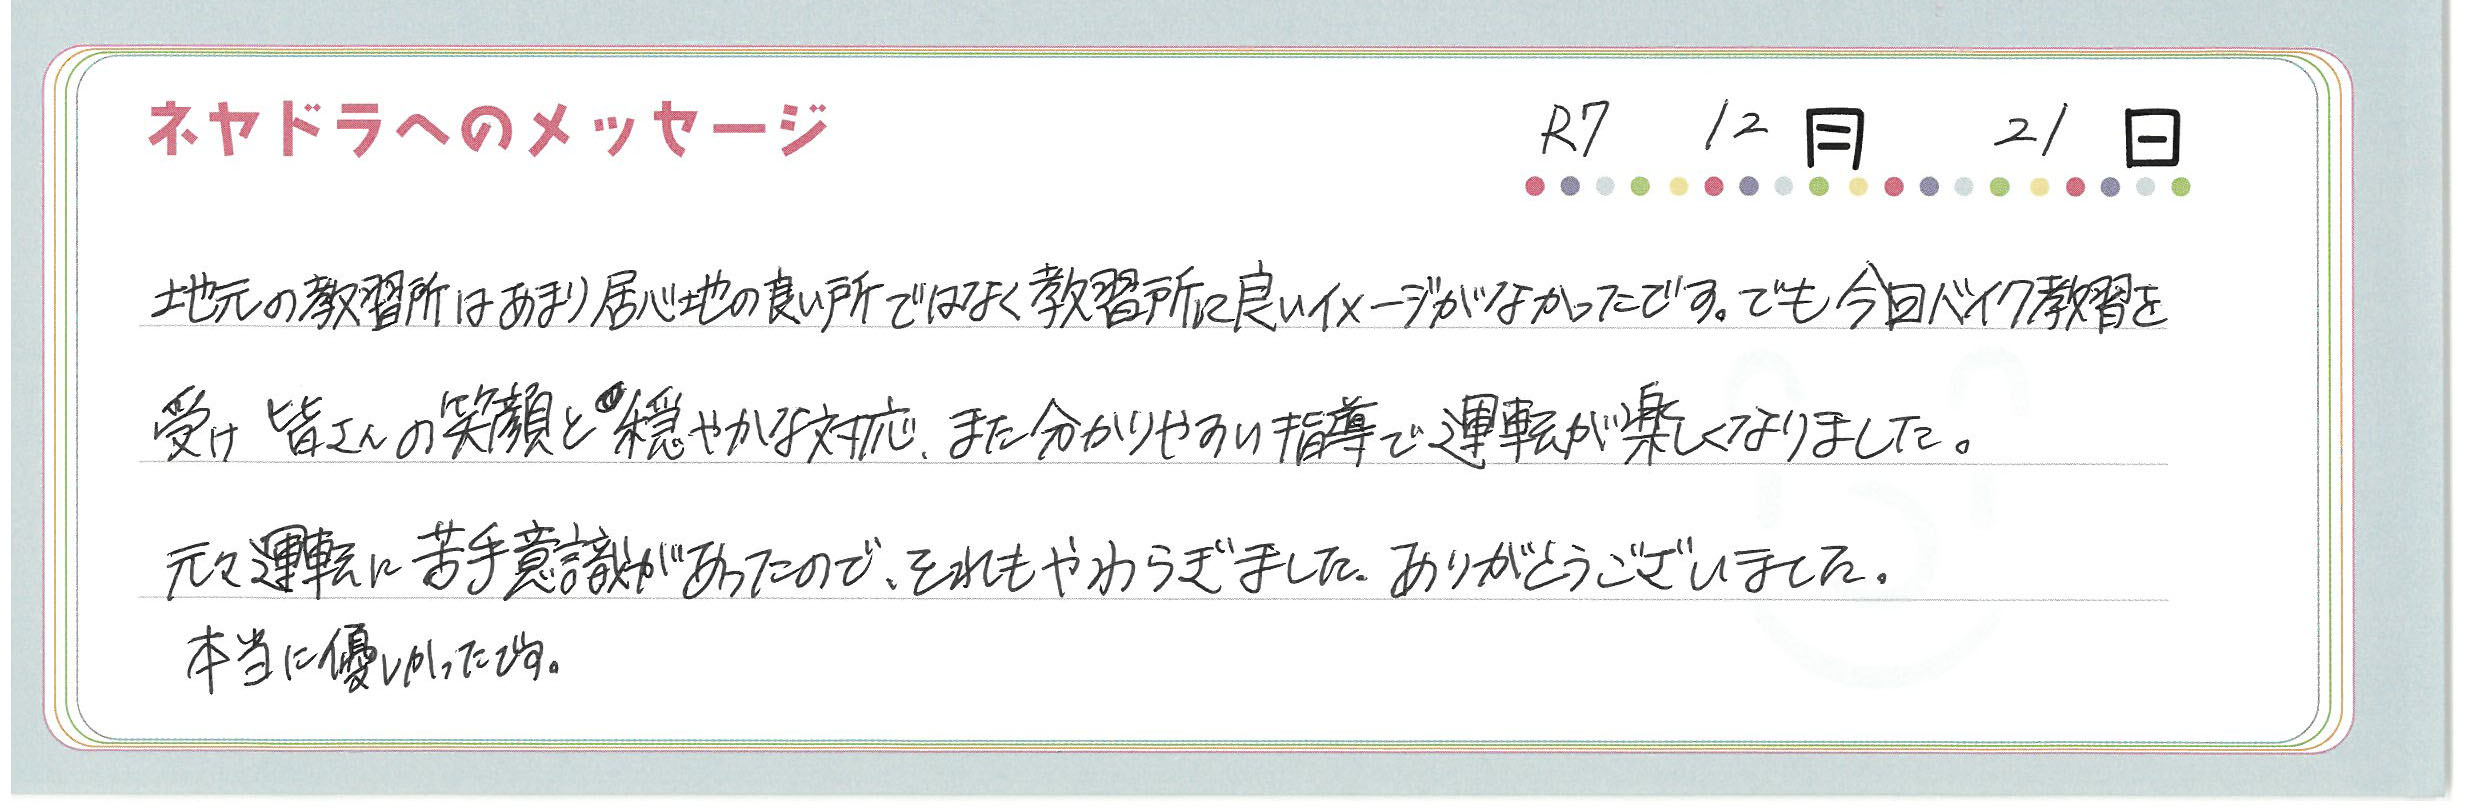 ネヤドラへのメッセージ
R7 12月 21日
地元の教習所はあまり居心地の良い所ではなく教習所に良いイメージがなかったです。でも今回バイク教習を
受け 皆さんの笑顔と穏やかな対応、また分かりやすい指導で運転が楽しくなりました。
元々運転に苦手意識があったので、それもやわらぎました。ありがとうございました。
本当に優しかったです。